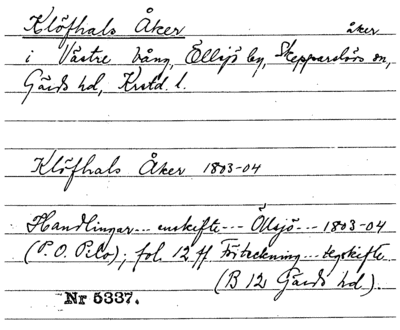 Klöfhals Åker åker
i Västre Vång, Öllsjö by, Skepparslövs sn,
Gärds hd, Krstd. l.
Klöfhals Åker 1803-04
Handlingar --- enskifte --- Öllsjö --- 1803-04
(P.O. Pilo); fol. 12 ff Förteckning --- egoskifte
(B 12 Gärds hd.).
Nr 5337.